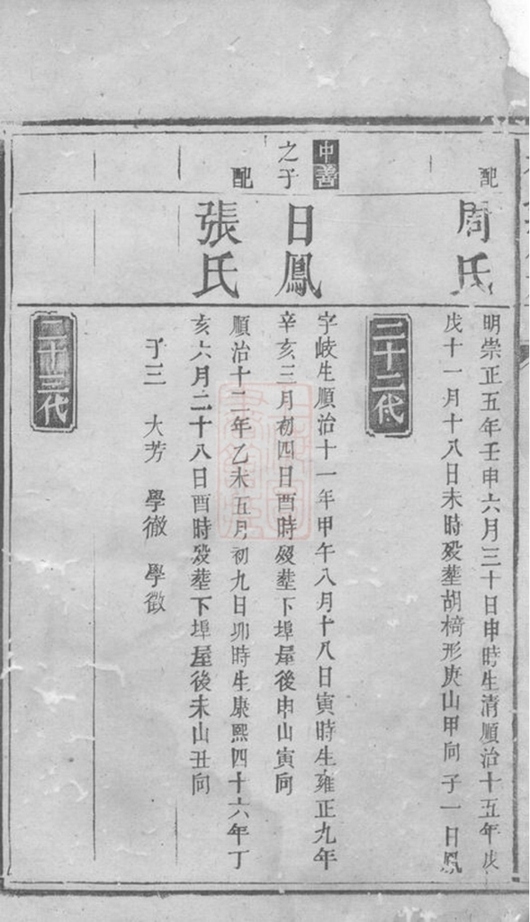 配
周氏
明崇正五年壬申六月三十日申時生清順治十五年戊
戌十一月十八日未時殁塟胡椅形庚山甲向子一日鳳
二十二代
中善
之子
日鳳
字岐生順治十一年甲午八月十八日寅時生雍正九年
辛亥三月初四日酉時殁塟下埠屋後申山寅向
配
張氏
順治十二年乙未五月初九日卯時生康熙四十六年丁
亥六月二十八日酉時殁塟下埠屋後未山丑向
子三 大芳 學徹 學徵
二十三代